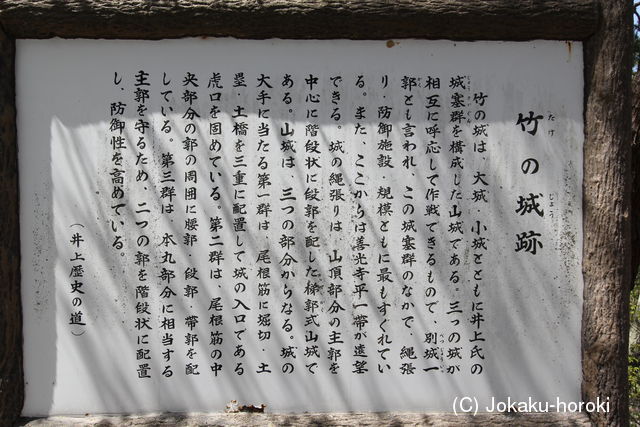 竹の城跡
たけ じょう
竹の城は、大城・小城とともに井上氏の
城塞群を構成した山城である。三つの城が
じょうさいぐん
相互に呼応して作戦できるもので、別城一
郭とも言われ、この城塞群のなかで、縄張
り・防御施設・規模ともに最もすぐれてい
る。また、ここからは善光寺平一帯が遠望
できる。城の縄張りは、山頂部分の主郭を
中心に階段状に段郭を配した梯郭式山城で
ある。山城は、三つの部分からなる。城の
大手に当たる第一群は、尾根筋に堀切・土
塁・土橋を三重に配置して城の入口である
虎口を固めている。第二群は、尾根筋の中
央部分の郭の周囲に腰郭・段郭・帯郭を配
している。第三群は、本丸部分に相当する
主郭を守るため、二つの郭を階段状に配置
し、防御性を高めている。
(井上歴史の道)
(C) Jokaku-horoki